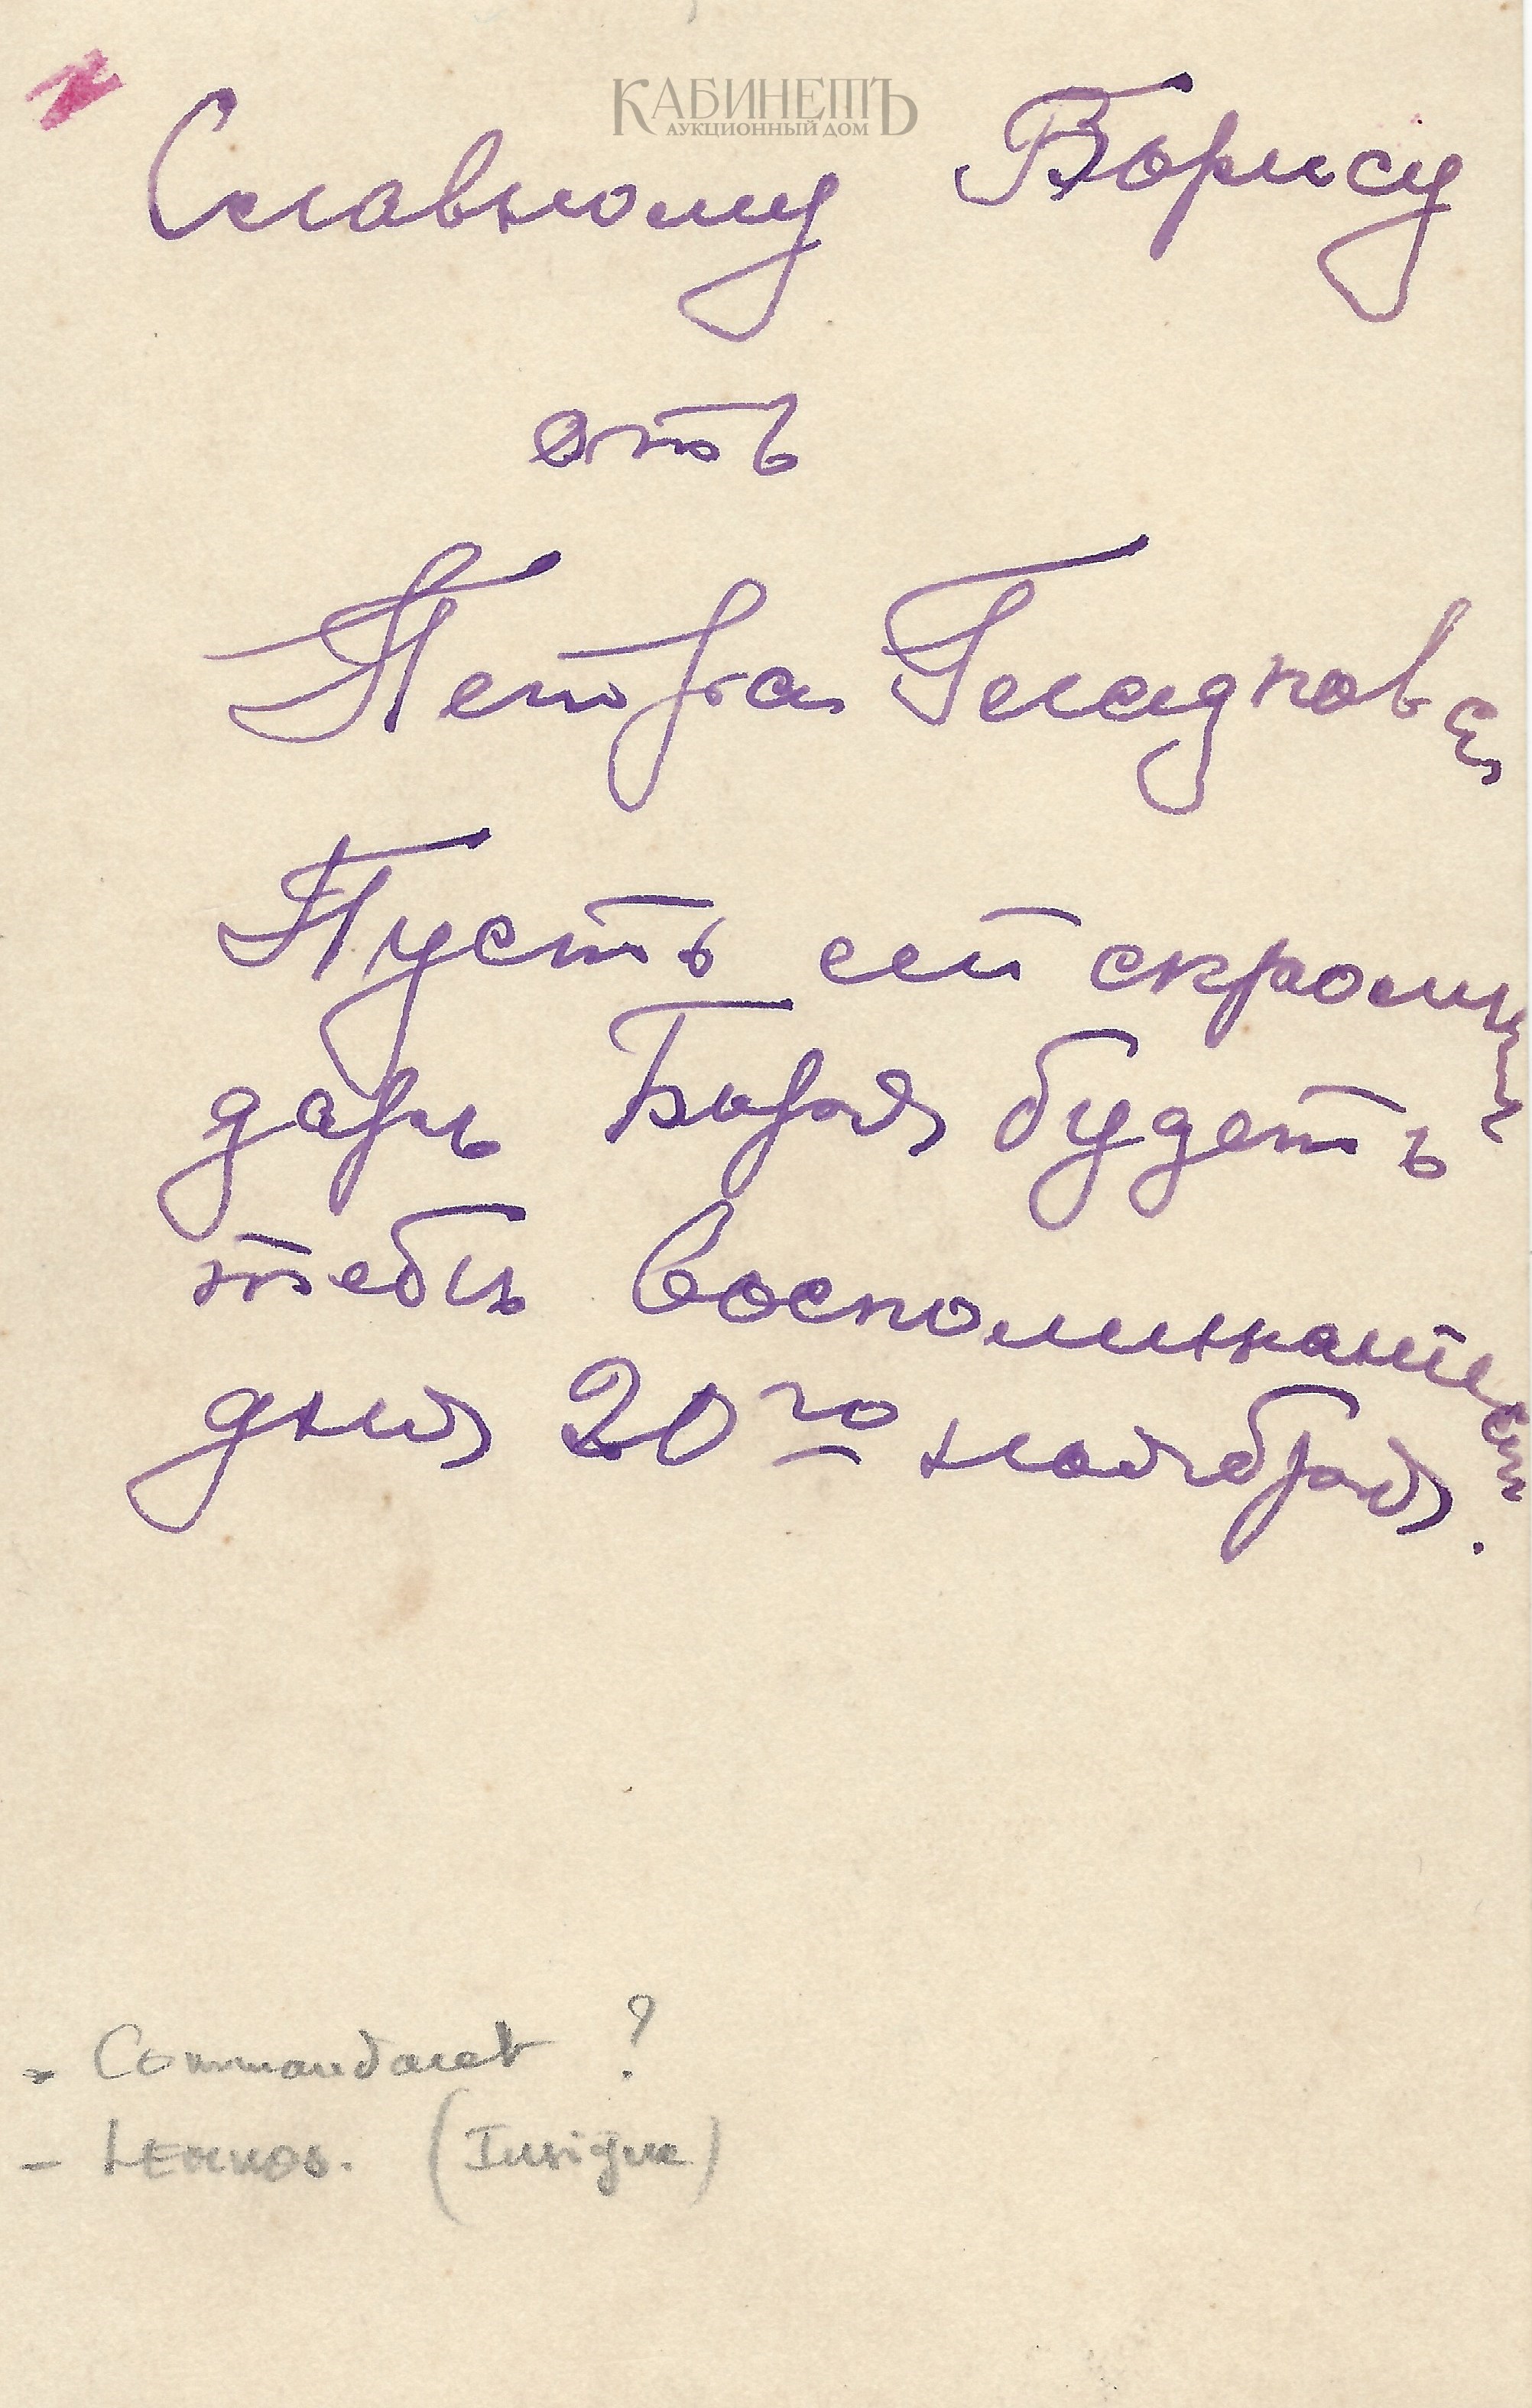 КАБИНЕТЪ
АУКЦИОННЫЙ ДОМ
Славному Борису
отъ
Петра Гладкова
Пусть сей скромный
даръ Боря будетъ
тебѣ воспоминанiем
дня 20го ноября.
- Commandant ?
- LEMNOS. (Insigne)